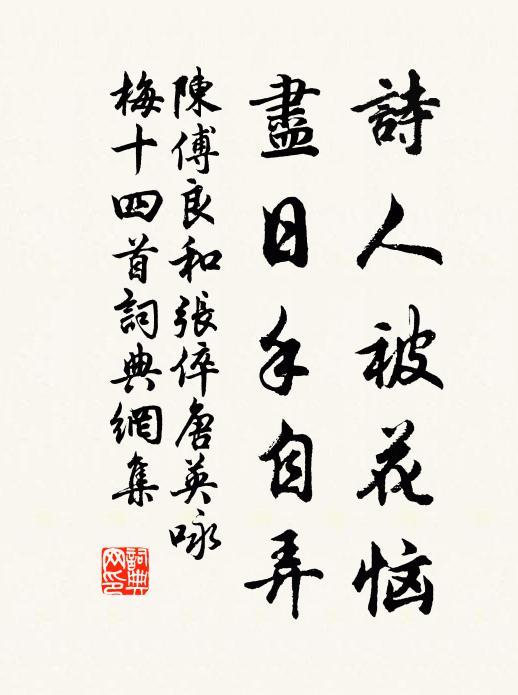 詩人被花恼
盡日手自弄
陳傅良和張倅唐英咏
梅十四首詞典網集
詞典
网印